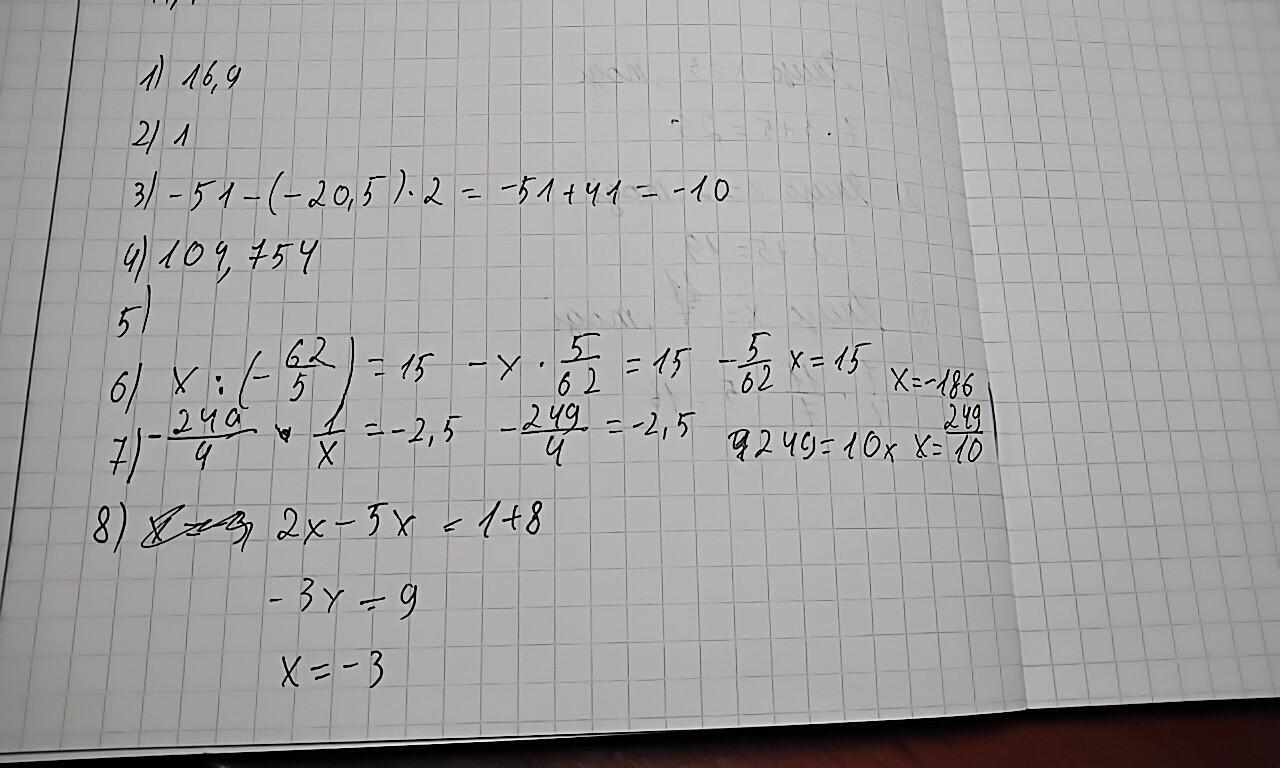 1) 16,9
2) 1
3) -51-(-20,5)·2 = -51+41 = -10
4) 109,754
5)
6) x : (-62/5) = 15 -x · 5/62 = 15 -5/62 x = 15 x=-186
7) -249/4 · 1/x = -2,5 -249/4 = -2,5 249=10x x=249/10
8) 2x-5x = 1+8
-3x = 9
x = -3